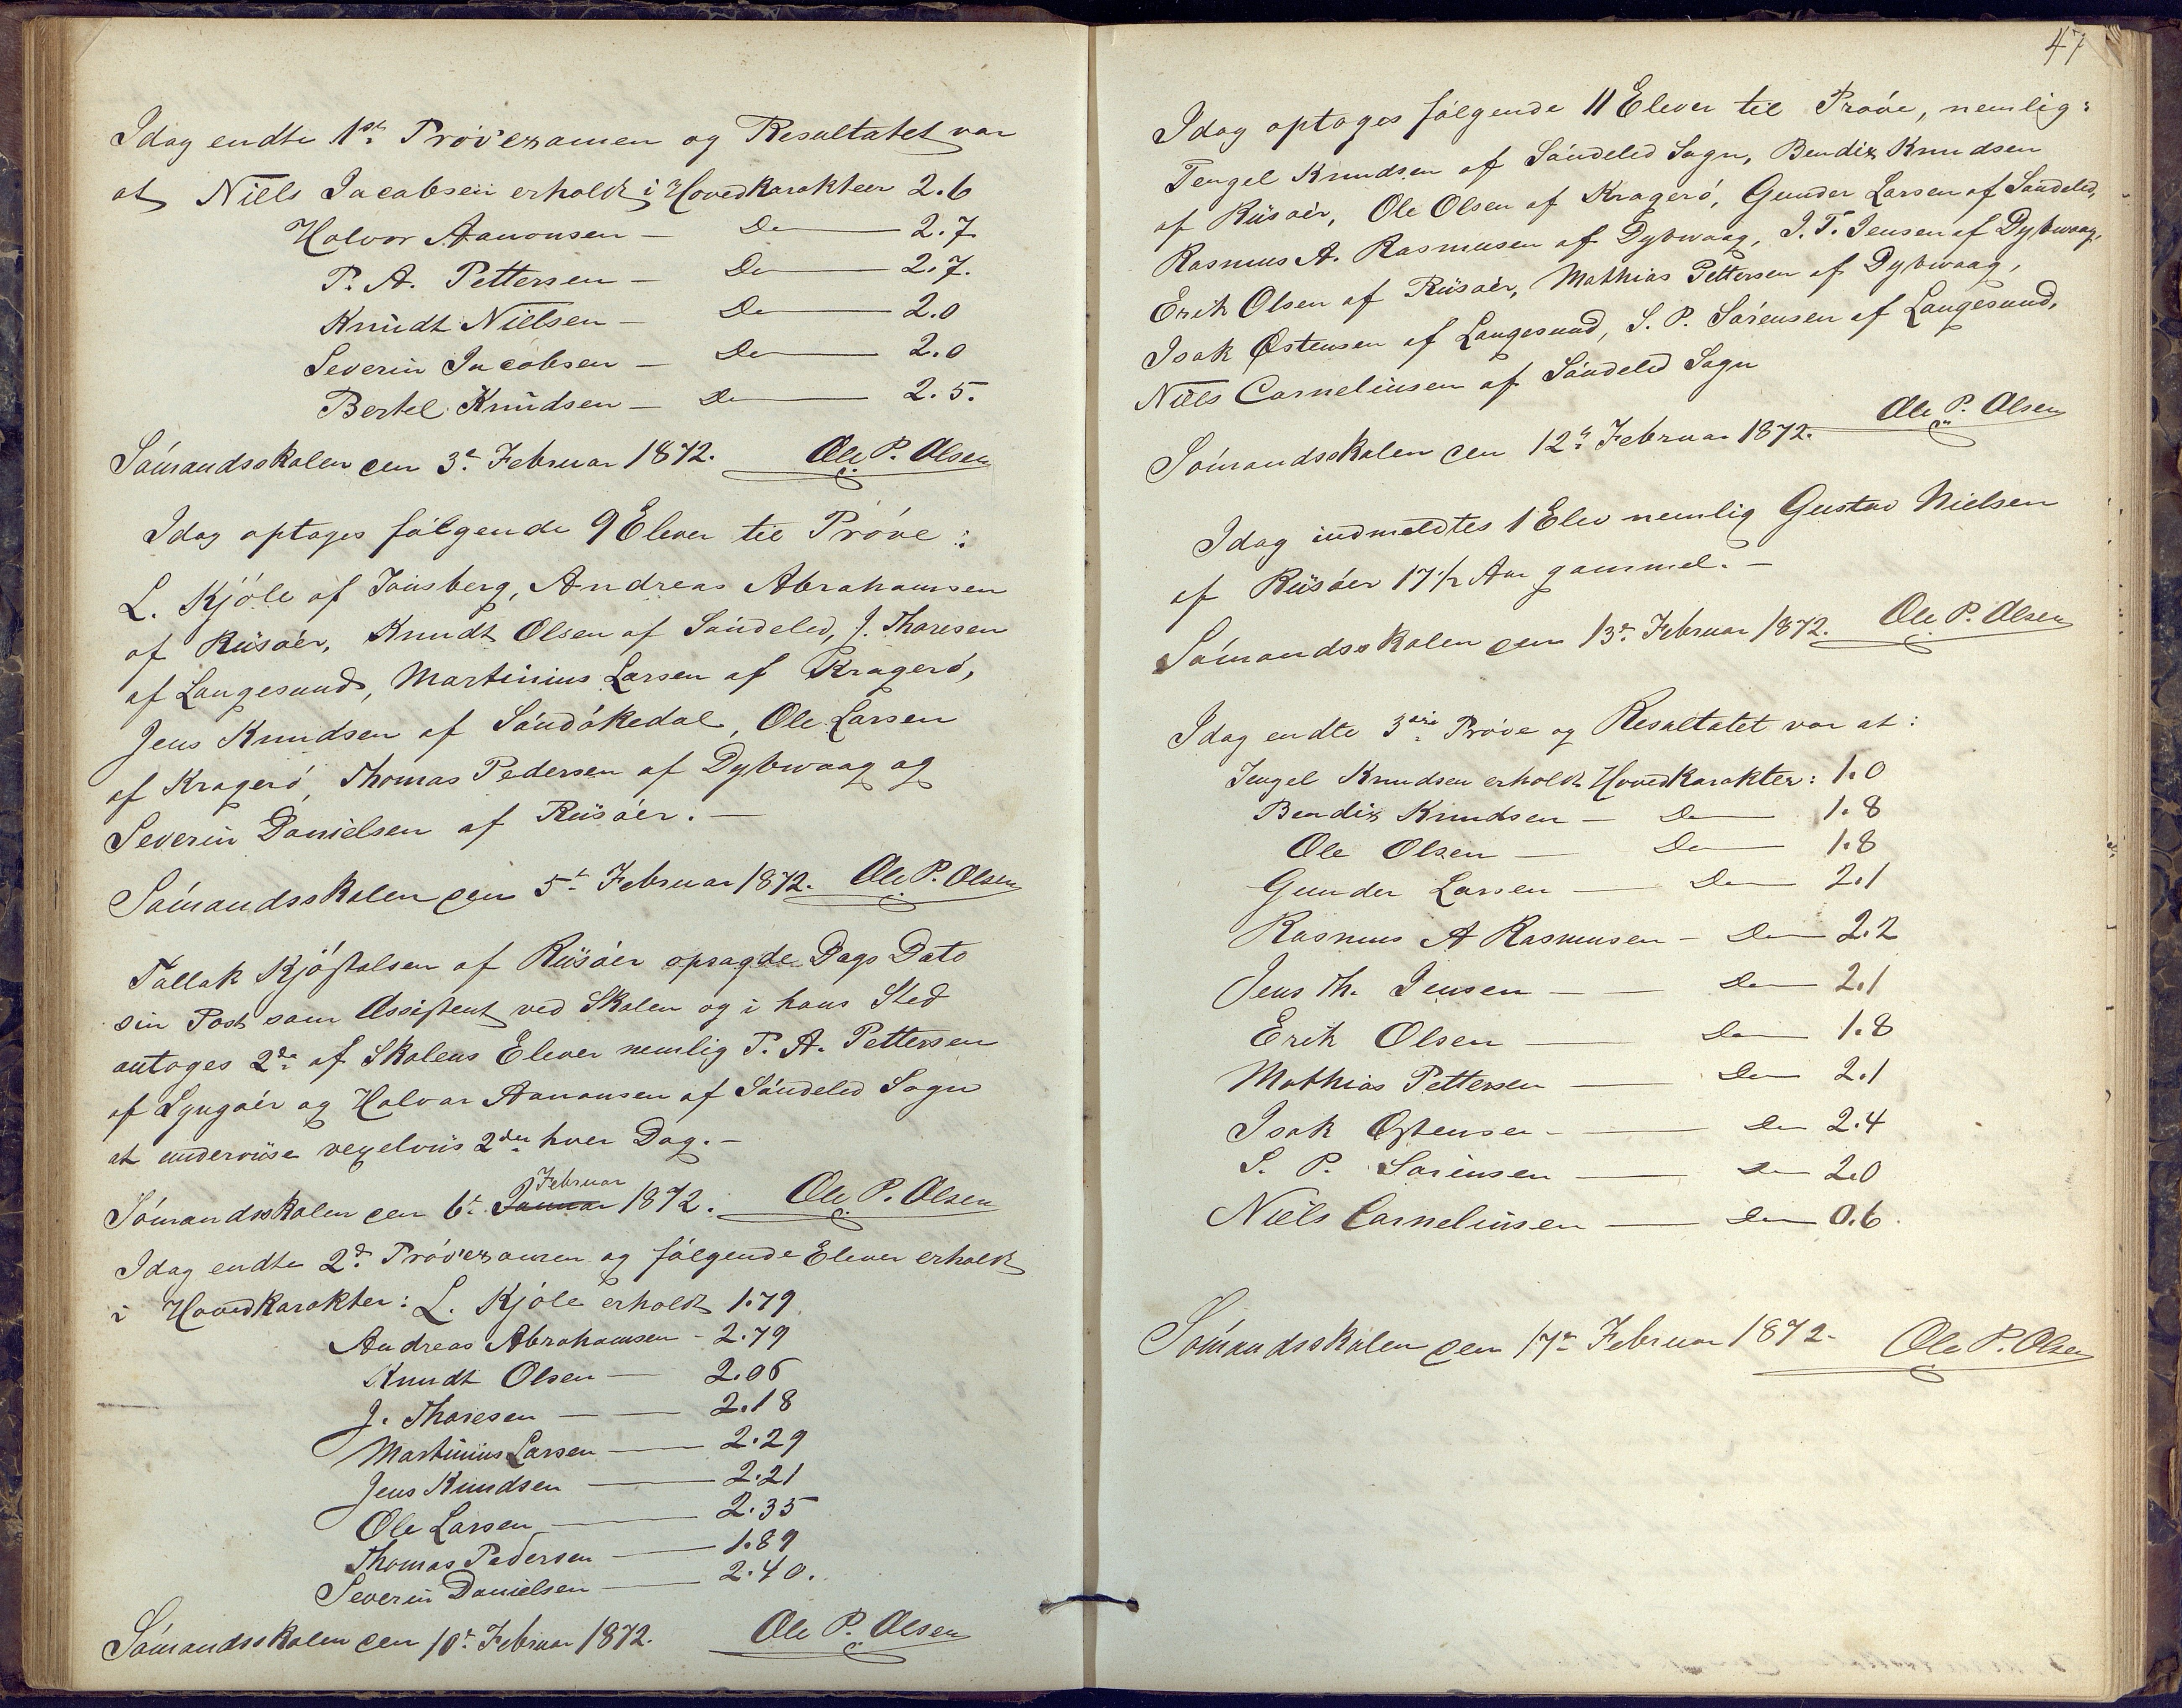 Idag endte 1ste Prövexamen og Resultatet var
at Niels Jacobsen erholdt i Hovedkarakteer 2.6
Halvor Aanonsen — Do — 2.7.
P. A. Pettersen — Do — 2.7.
Knudt Nielsen — Do — 2.0
Severin Jacobsen — Do — 2.0
Bertel Knudsen — Do — 2.5.
Sömandsskolen den 3de Februar 1872. Ole P. Olsen
Idag optoges fölgende 9 Elever til Pröve:
L. Kjöle af Tönsberg, Andreas Abrahamsen
af Riisöer, Knudt Olsen af Söndeled, J. Thoresen
af Langesund, Martinius Larsen af Kragerö,
Jens Knudsen af Söndökedal, Ole Larsen
af Kragerö, Thomas Pedersen af Dybwaag og
Severin Danielsen af Riisöer. —
Sömandsskolen den 5te Februar 1872. Ole P. Olsen
Tallak Kjöstolsen af Riisöer opsagde Dags Dato
sin Post som Assistent ved Skolen og i hans Sted
antoges 2de af Skolens Elever nemlig P. A. Pettersen
af Lyngöer og Halvor Aanonsen af Söndeled Sogn
at underviise vexelviis 2den hver Dag. —
Sömandsskolen den 6te Januar Februar 1872. Ole P. Olsen
Idag endte 2d Prövexamen og fölgende Elever erholdt
i Hovedkarakter: L. Kjöle erholdt 1.79
Andreas Abrahamsen - 2.79
Knudt Olsen — 2.06
J. Thoresen — 2.18
Martinius Larsen — 2.29
Jens Knudsen — 2.21
Ole Larsen — 2.35
Thomas Pedersen — 1.89
Severin Danielsen — 2.40.
Sömandsskolen den 10de Februar 1872. Ole P. Olsen
47
Idag optoges fölgende 11 Elever til Pröve, nemlig:
Tengel Knudsen af Söndeled Sogn, Bendix Knudsen
af Riisöer, Ole Olsen af Kragerö, Gunder Larsen af Söndeled,
Rasmus A. Rasmusen af Dybwaag, J. T. Jensen af Dybwaag,
Erik Olsen af Riisöer, Mathias Pettersen af Dybwaag,
Isak Østensen af Langesund, S. P. Sörensen af Langesund,
Niels Corneliusen af Söndeled Sogn
Sömandsskolen den 12te Februar 1872. Ole P. Olsen
Idag indmeldtes 1 Elev nemlig Gustav Nielsen
af Riisöer 17 1/2 Aar gammel. —
Sömandsskolen den 13de Februar 1872. Ole P. Olsen
Idag endte 3die Pröve og Resultatet var at:
Tengel Knudsen erholdt Hovedkarakter: 1.0
Bendix Knudsen — Do — 1.8
Ole Olsen — Do — 1.8
Gunder Larsen — Do — 2.1
Rasmus A Rasmusen — Do — 2.2
Jens Th. Jensen — Do — 2.1
Erik Olsen — Do — 1.8
Mathias Pettersen — Do — 2.1
Isak Østensen — Do — 2.4
S. P. Sörensen — Do — 2.0
Niels Corneliusen — Do — 0.6.
Sömandsskolen den 17de Februar 1872. Ole P. Olsen